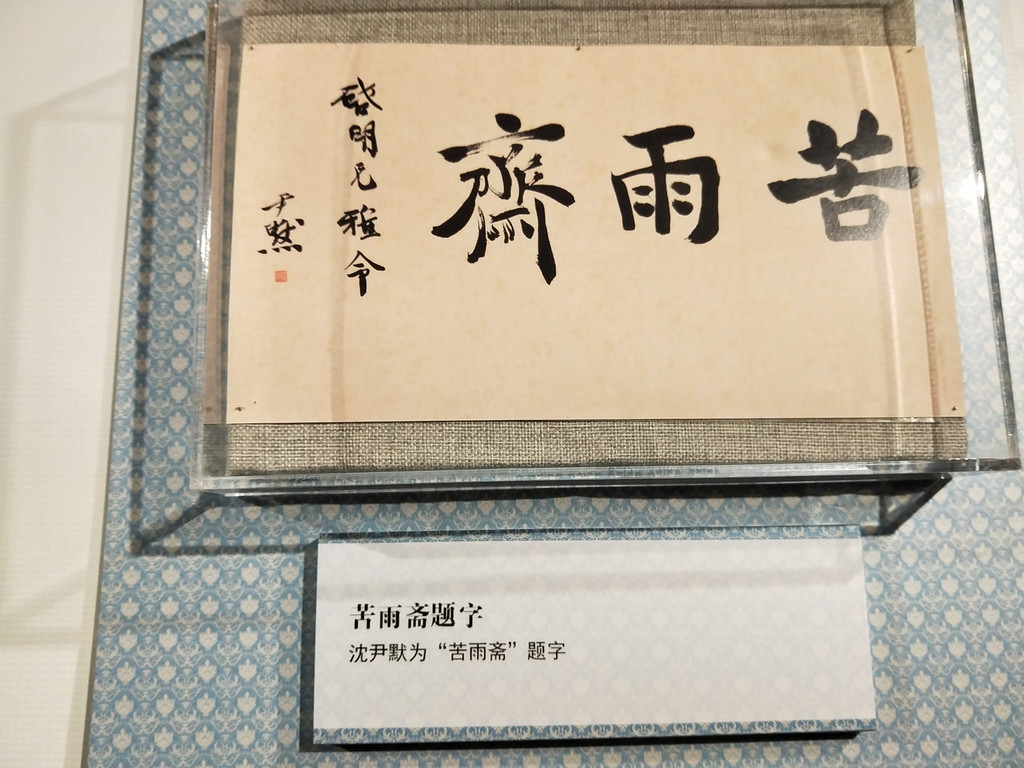 苦雨齋
啟明兄雅令
尹默
苦雨斋题字
沈尹默为“苦雨斋”题字